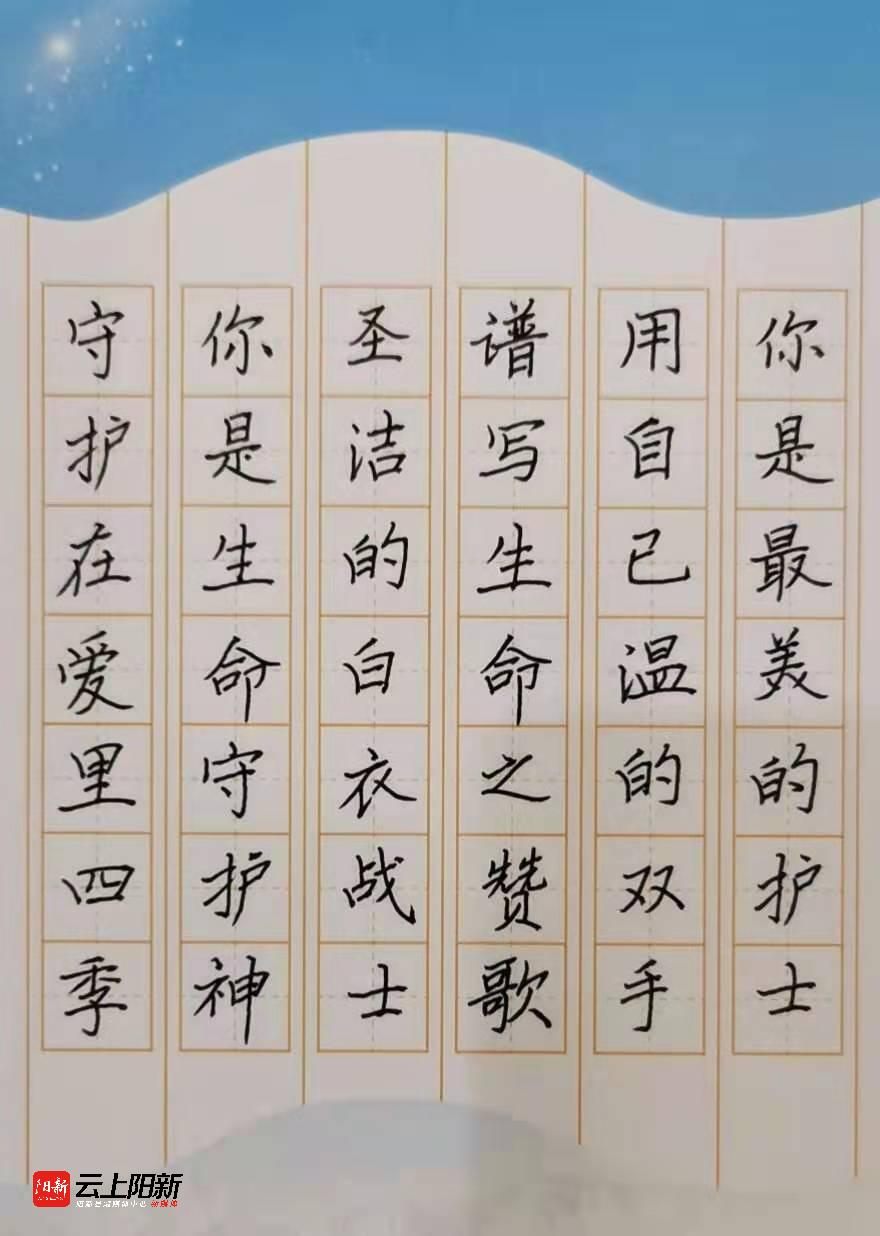 你是最美的护士
用自己温的双手
谱写生命之赞歌
圣洁的白衣战士
你是生命守护神
守护在爱里四季
阳新
云上阳新